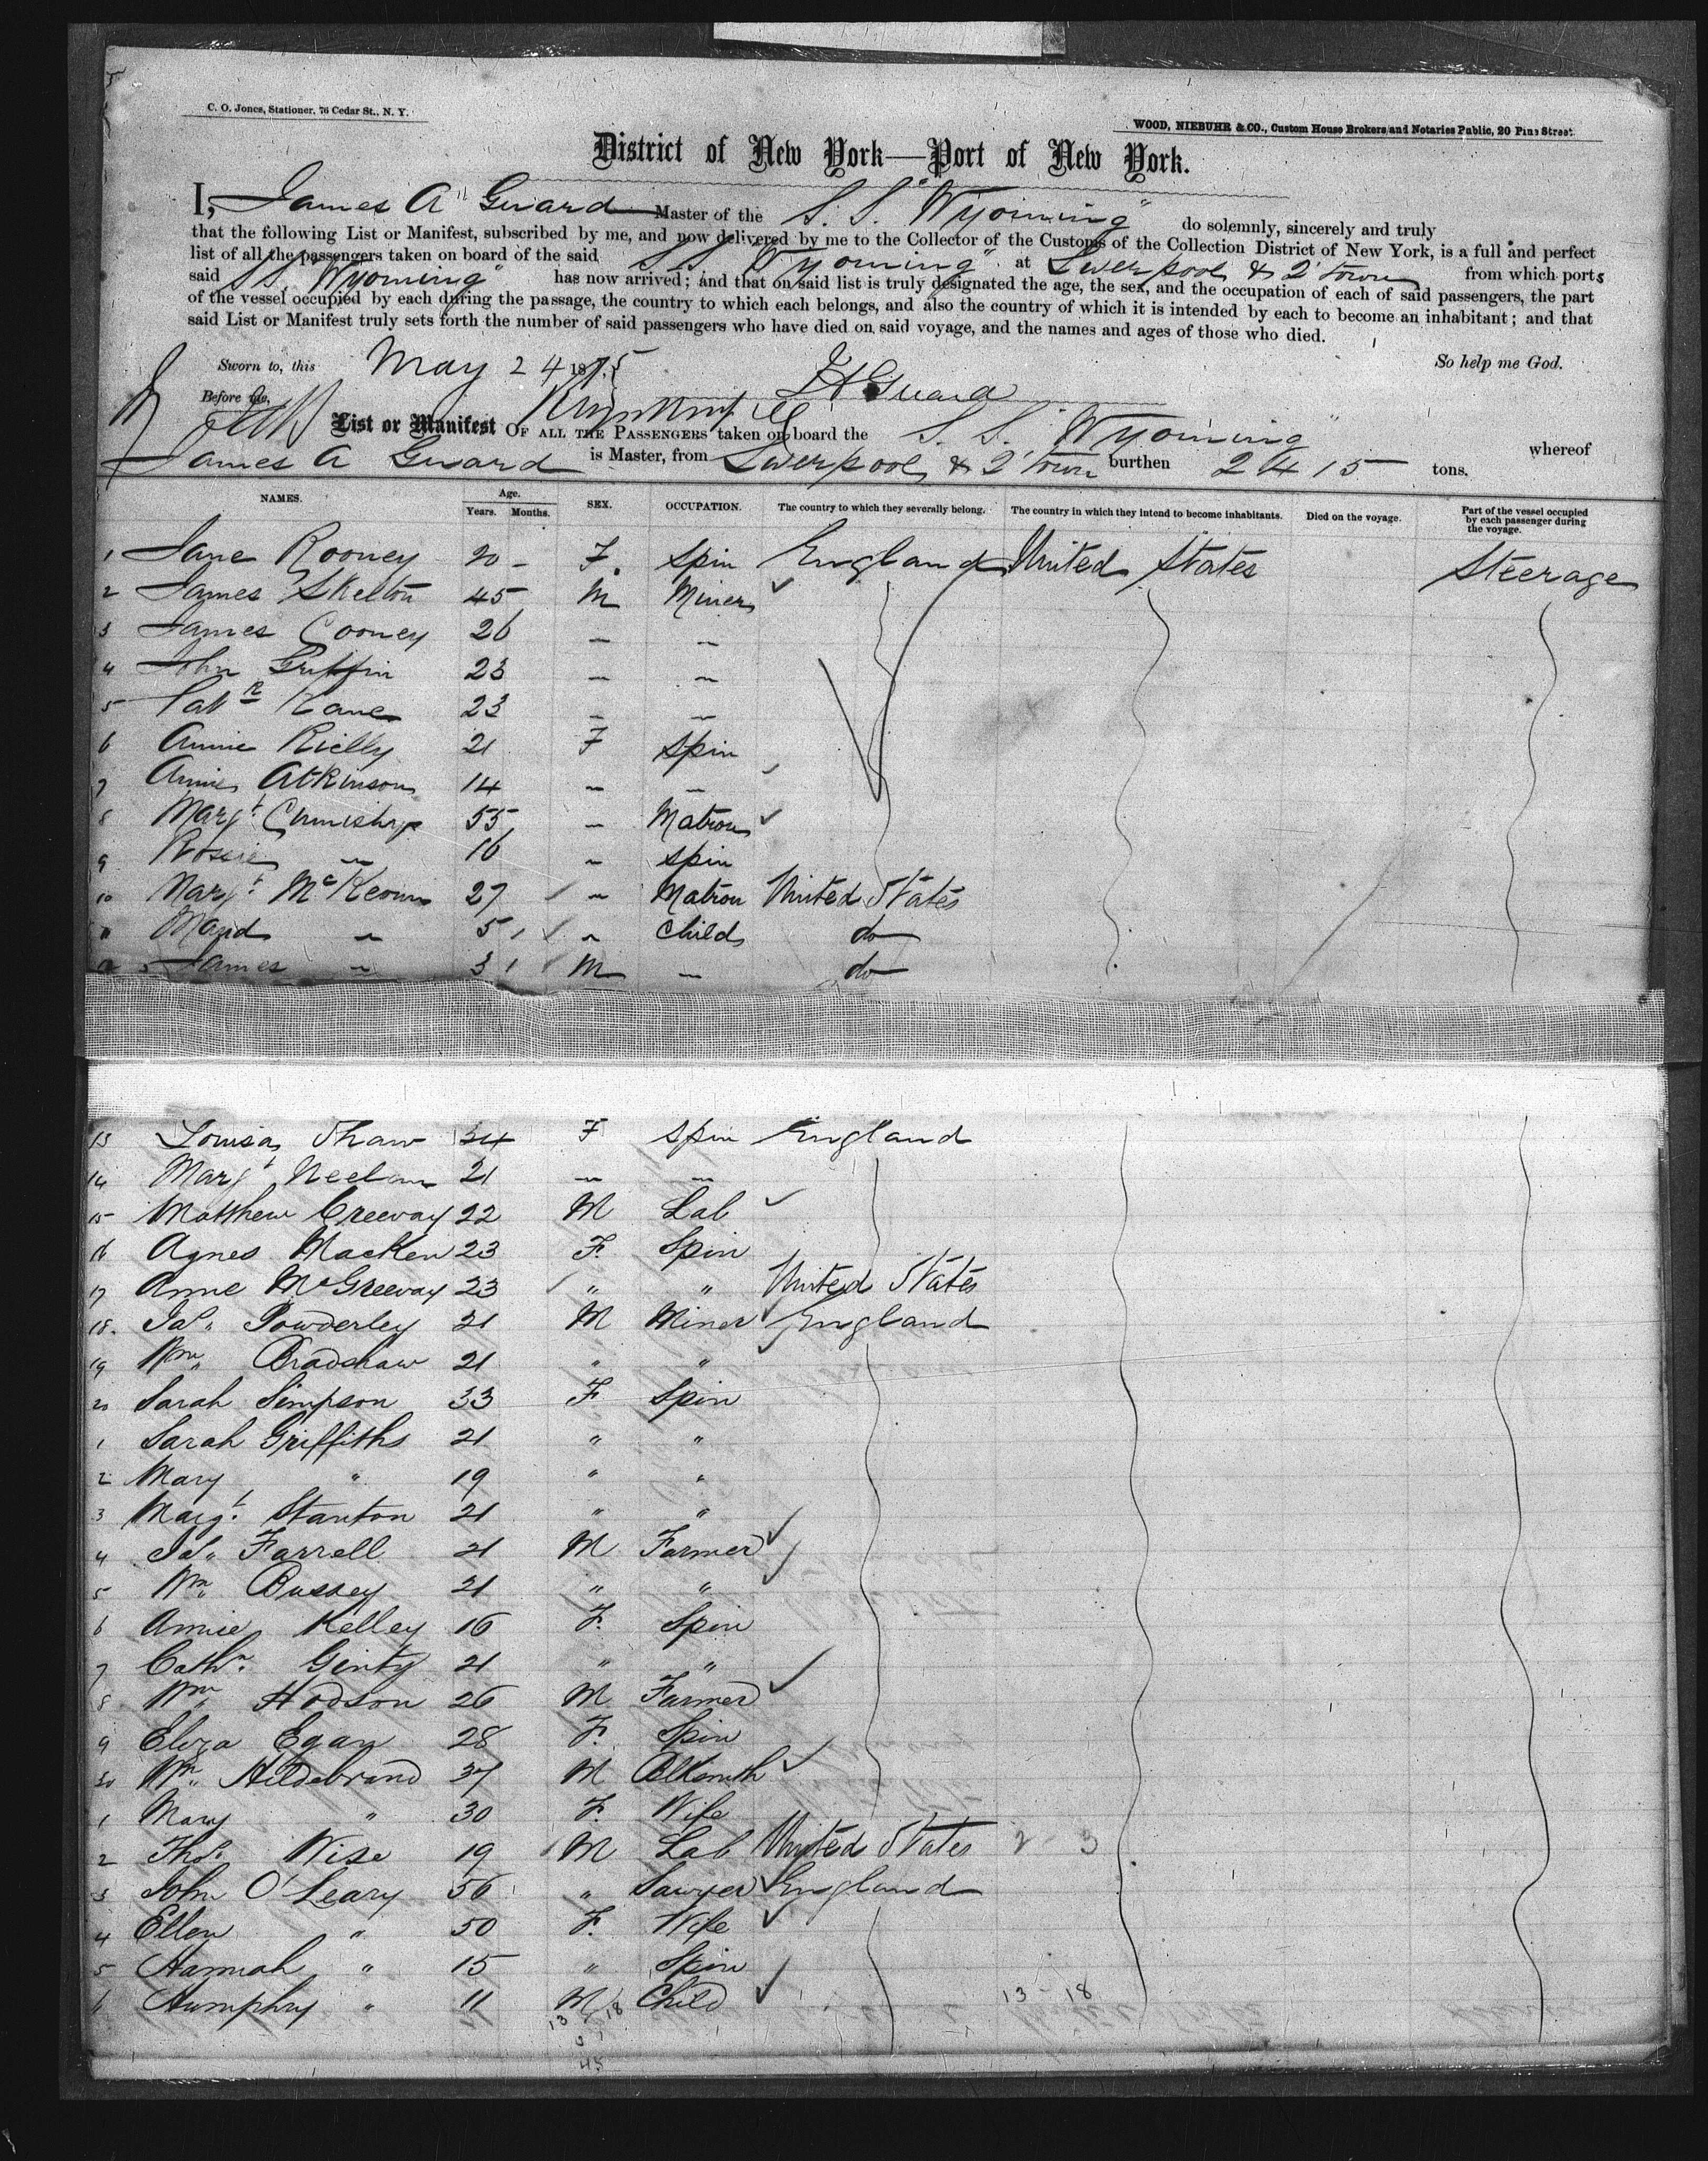 C. O. Jones, Stationer, 76 Cedar St., N. Y.
WOOD, NIEBUHR & CO., Custom House Brokers and Notaries Public, 20 Pine Street.
District of New York—Port of New York.
I, James A Guard Master of the S. S. "Wyoming" do solemnly, sincerely and truly
that the following List or Manifest, subscribed by me, and now delivered by me to the Collector of the Customs of the Collection District of New York, is a full and perfect
list of all the passengers taken on board of the said S S "Wyoming" at Liverpool & Q town from which ports
said S S. "Wyoming" has now arrived; and that on said list is truly designated the age, the sex, and the occupation of each of said passengers, the part
of the vessel occupied by each during the passage, the country to which each belongs, and also the country of which it is intended by each to become an inhabitant; and that
said List or Manifest truly sets forth the number of said passengers who have died on said voyage, and the names and ages of those who died.
Sworn to, this May 24 1875 So help me God.
Before me, J A Guard
List or Manifest OF ALL THE PASSENGERS taken on board the S. S. "Wyoming" whereof
James A Guard is Master, from Liverpool & Q town burthen 2415 tons.
NAMES. Age. Years. Months. SEX. OCCUPATION. The country to which they severally belong. The country in which they intend to become inhabitants. Died on the voyage. Part of the vessel occupied by each passenger during the voyage.
1 Jane Rooney 20 - F. Spin England United States Steerage
2 James Skelton 45 M Miner
3 James Cooney 26 " "
4 John Griffin 23 " "
5 Patk Kane 23 " "
6 Annie Rielly 21 F Spin
7 Annie Atkinson 14 " "
8 Margt 55 " Matron
9 Rossie " 16 " Spin
10 Margt McKeown 27 " Matron United States
11 Maud " 5 " Child do
12 James " 3 M " do
13 Louisa Shaw 34 F Spin England
14 Margt 21 " "
15 Matthew Creevay 22 M Lab
16 Agnes Macken 23 F. Spin
17 Anne McGreevay 23 " " United States
18. Jas. Powderley 21 M Miner England
19 Wm Bradshaw 21 " "
20 Sarah Simpson 33 F Spin
1 Sarah Griffiths 21 " "
2 Mary " 19 " "
3 Margt. Stanton 21 " "
4 Jas. Farrell 21 M Farmer
5 Wm Bussey 21 " "
6 Annie Kelley 16 F. Spin
7 Cathn. Ginty 21 " "
8 Wm Hodson 26 M Farmer
9 Eliza Egan 28 F. Spin
30 Wm Hildebrand 37 M Blksmith
1 Mary " 30 F. Wife
2 Thos. Wise 19 M Lab United States 2 3
3 John O'Leary 56 " Sawyer England
4 Ellen " 50 F. Wife
5 Hannah " 15 " Spin
6 Humphry " 11 M Child 13-18
13 18
45